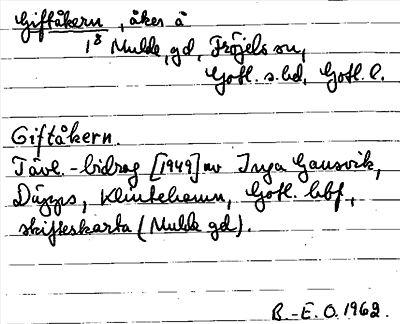 Giftåkern, åker å
1⁸ Mulde, gd, Fröjels sn,
Gotl. s. hd, Gotl. l.
Giftåkern.
Tävl.-bidrag [1949] av Inga Gansvik,
Däggs, Klintehamn, Gotl. hbf,
skifteskarta (Mulde gd).
B.-E. O. 1962.